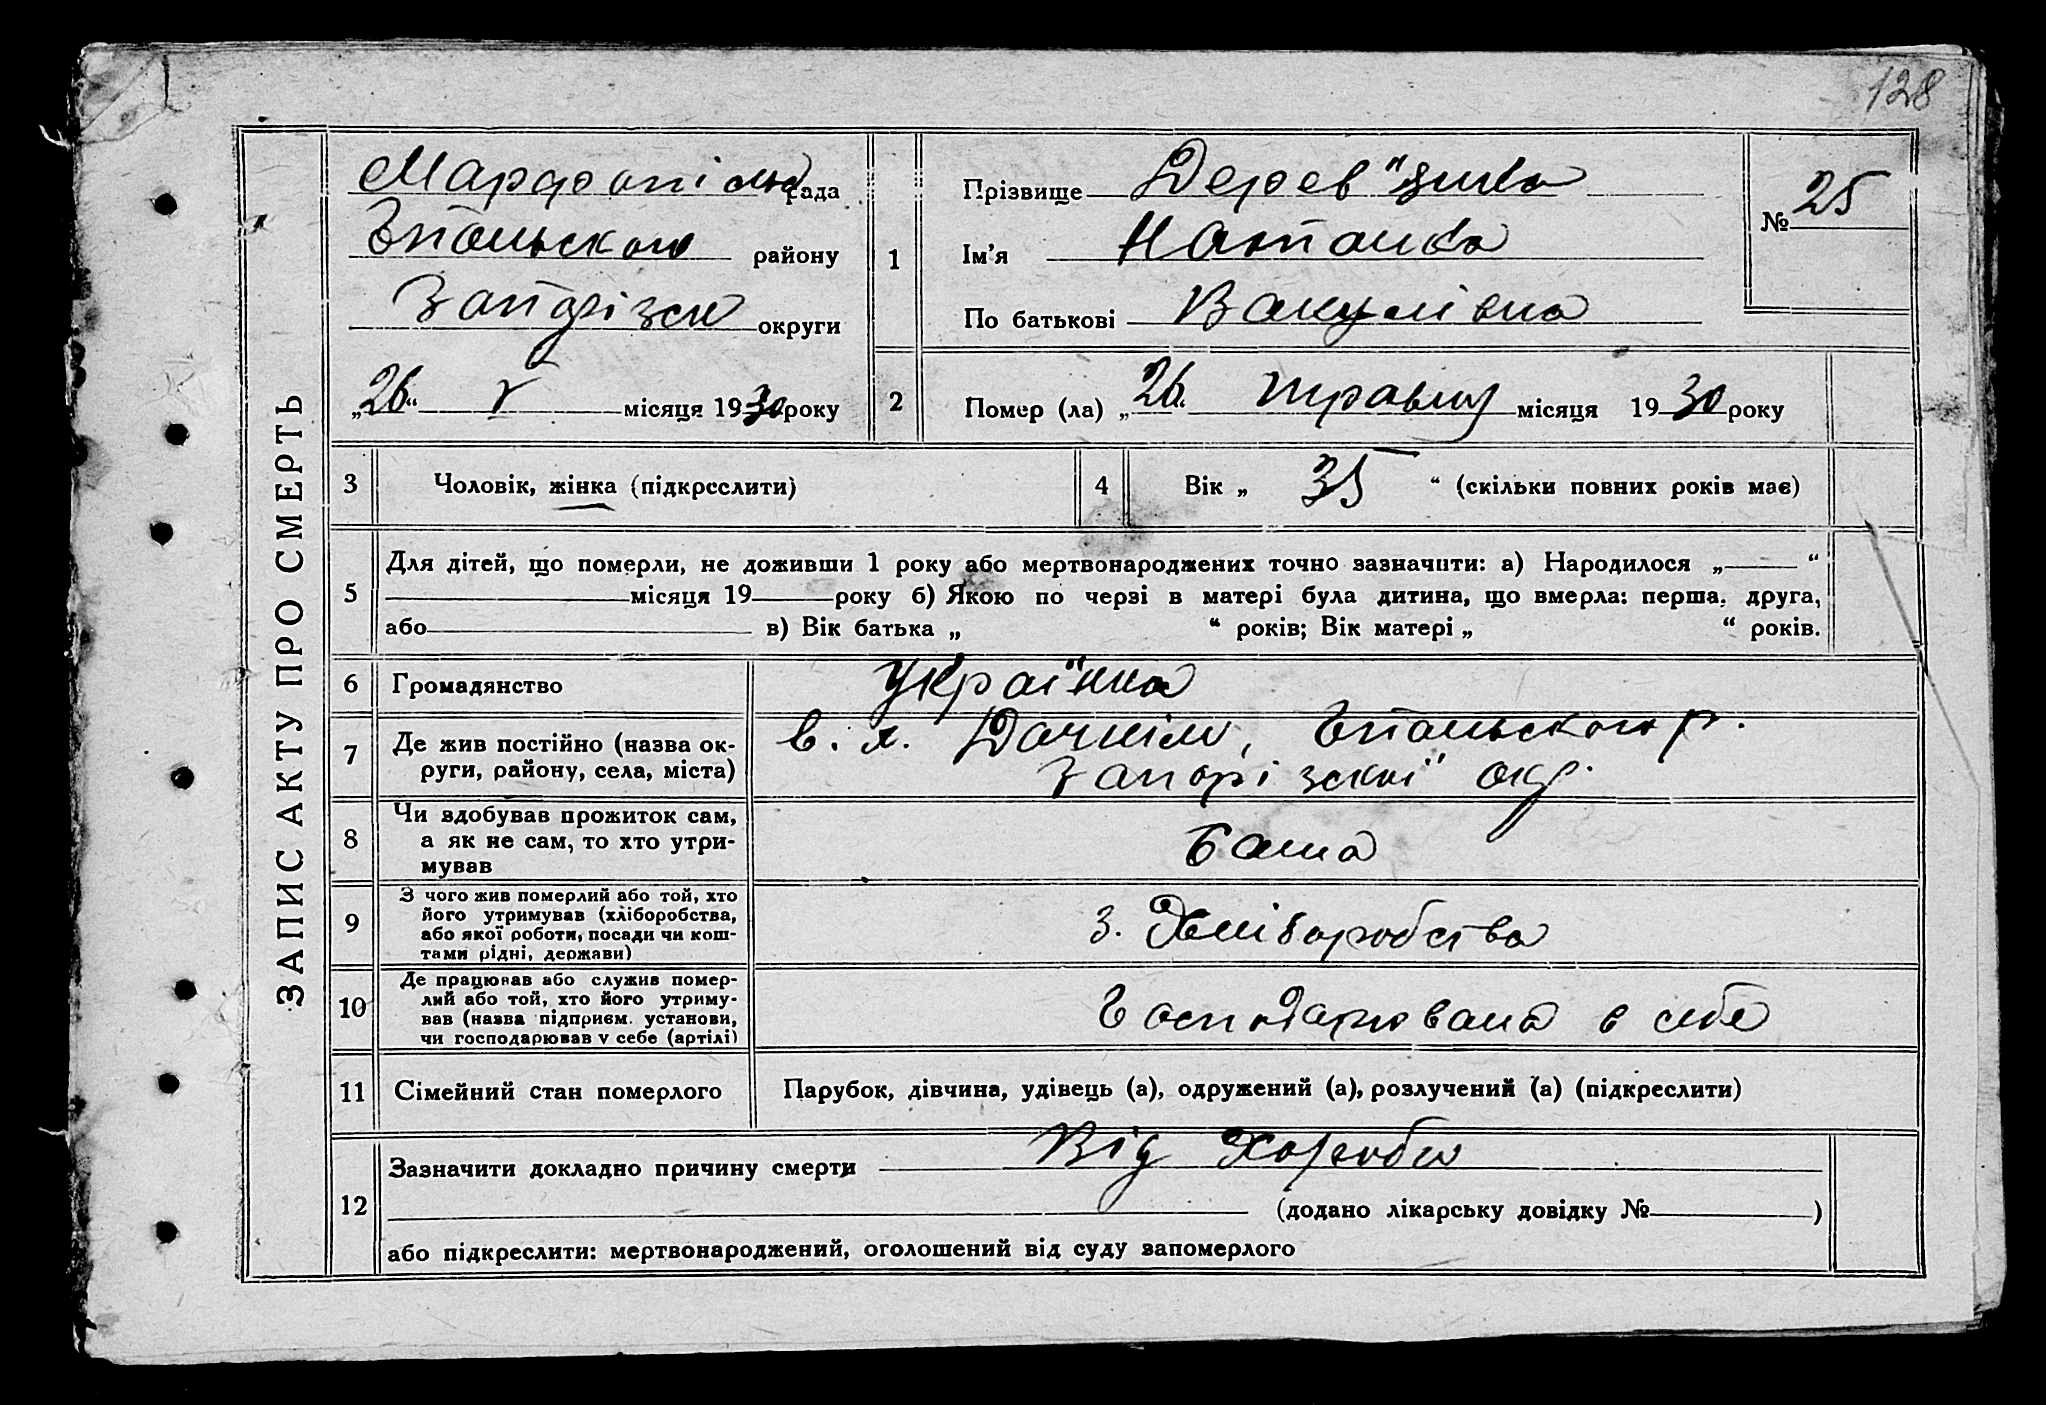 128
ЗАПИС АКТУ ПРО СМЕРТЬ
Марфопільс рада
Гпільського району
Запорізск округи
„26“ V місяця 1930 року
1
Прізвище Дерев"янко
Ім’я Наталка
По батькові Вакулівна
№ 25
2
Помер (ла) „26“ травня місяця 1930 року
3
Чоловік, жінка (підкреслити)
4
Вік „ 35 “ (скільки повних років має)
5
Для дітей, що померли, не доживши 1 року або мертвонароджених точно зазначити: а) Народилося „ “
місяця 19 року б) Якою по черзі в матері була дитина, що вмерла: перша, друга,
або в) Вік батька „ “ років; Вік матері „ “ років.
6
Громадянство
Українка
7
Де жив постійно (назва ок-
руги, району, села, міста)
в. х. р.
Запорізскої окр.
8
Чи здобував прожиток сам,
а як не сам, то хто утри-
мував
Сама
9
З чого жив померлий або той, хто
його утримував (хліборобства,
або якої роботи, посади чи кош-
тами рідні, держави)
З. Хліборобства
10
Де працював або служив помер-
лий або той, хто його утриму-
вав (назва підприєм. установи,
чи господарював у себе (артілі)
Господарювала в себе
11
Сімейний стан померлого
Парубок, дівчина, удівець (а), одружений (а), розлучений (а) (підкреслити)
12
Зазначити докладно причину смерти Від Хороби
(додано лікарську довідку № )
або підкреслити: мертвонароджений, оголошений від суду запомерлого